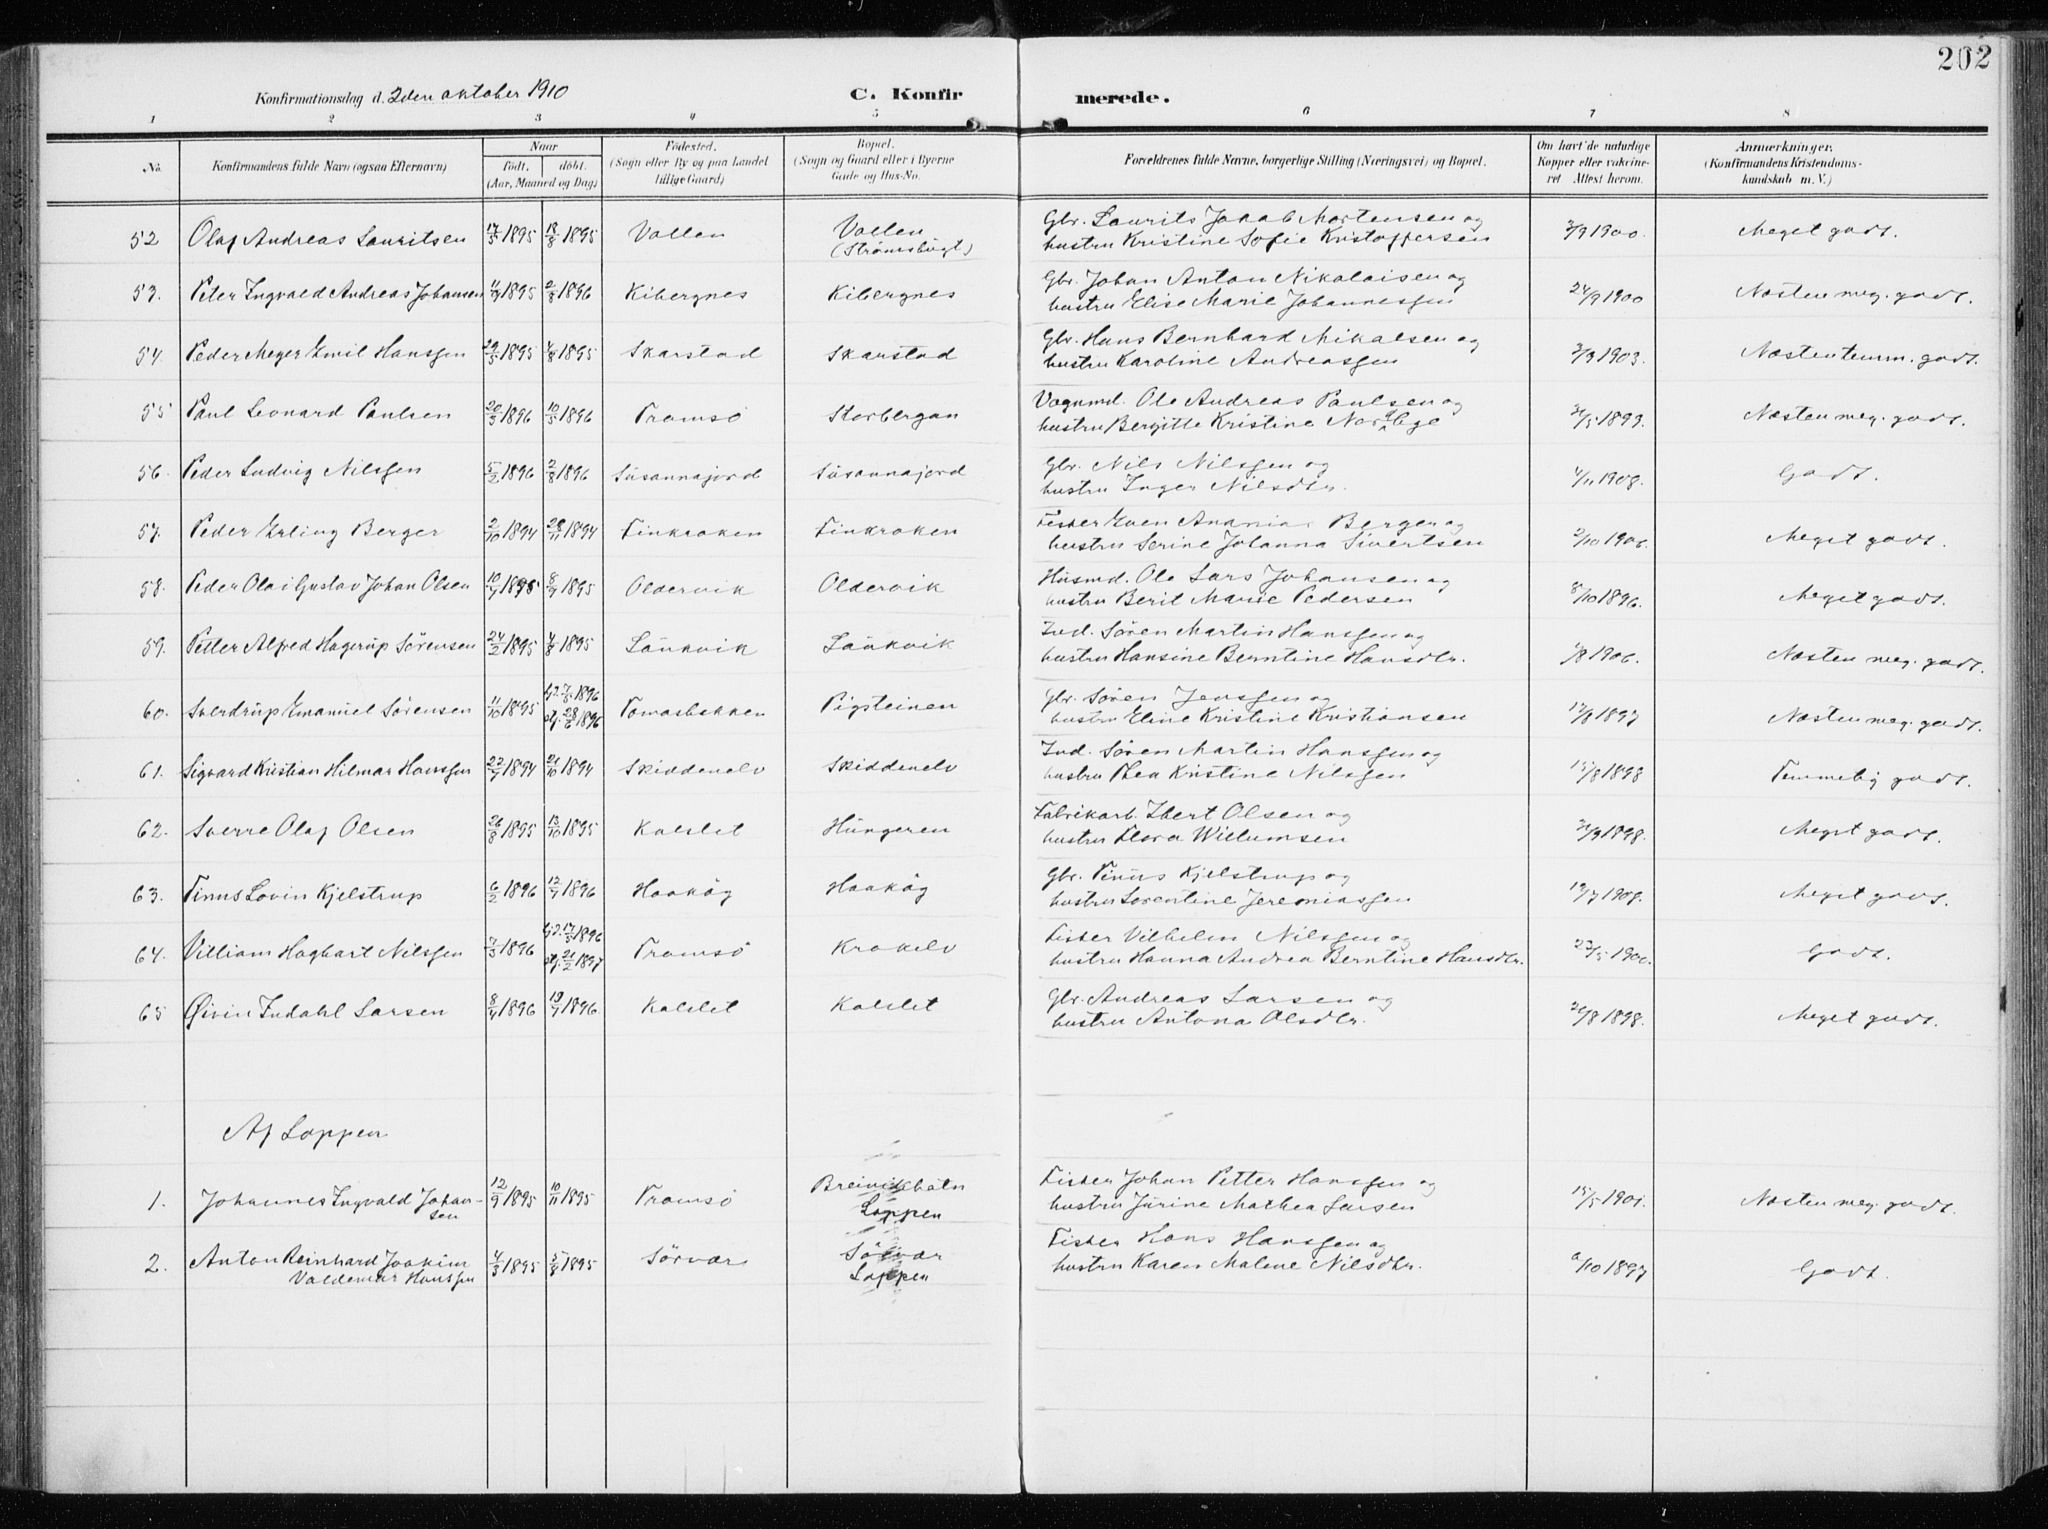 202
Konfirmationsdag d. 2den oktober 1910 C. Konfirmerede.
1 2 3 4 5 6 7 8
No. Konfirmandens fulde Navn (ogsaa Efternavn) Naar født. døbt. (Aar, Maaned og Dag) Fødested. (Sogn eller By og paa Landet tillige Gaard) Bopæl. (Sogn og Gaard eller i Byerne Gade og Hus-No. Forældrenes fulde Navne, borgerlige Stilling (Næringsvei) og Bopæl. Om havt de naturlige Kopper eller vakcineret Attest herom. Anmærkninger. (Konfirmandens Kristendomskundskab m. V.)
52 Olaf Andreas Lauritsen 17/5 1895 18/8 1895 Vollen Vollen (Strømsbugt) Gbr. Laurits Jakob Mortensen og
hustru Kristine Sofie Kristoffersen 2/9 1900. Meget godt.
53. Peter Ingvald Andreas Johansen 1895 2/8 1896 Kibergnes Kibergnes Gbr. Johan Anton Nikolaisen og
hustru Elise Marie Johannessen 24/9 1900 Næsten meg. godt.
54. Peder Meyer Emil Hanssen 29/5 1895 4/8 1895 Skarstad Skarstad Gbr. Hans Bernhard Mikalsen og
hustru Karoline Andreassen 1903. Næsten temm. godt.
55 Paul Leonard Paulsen 20/3 1896 10/5 1896 Tromsö Storbergan Vognmd. Ole Andreas Paulsen og
hustru Bergitte Kristine 1899. Næsten meg. godt.
56. Peder Ludvig Nilssen 5/2 1896 2/8 1896 Süsannajord Süsannajord Gbr. Nils Nilssen og
hustru Inger Nilsdtr. 4/11 1908. Godt.
57. Peder Erling Berger 2/10 1894 1894 Finkroken Finkroken Fisker Even Ananias Berger og
hustru Serine Johanna Sivertsen 2/10 1906. Meget godt.
58. Peder Olai Gustav Johan Olsen 1895 8/9 1895 Oldervik Oldervik Husmd. Ole Lars Johansen og
hustru Berit Marie Pedersen 8/10 1896. Meget godt.
59. Petter Alfred Hagerup Sörensen 24/2 1895 4/8 1895 Laükvik Laükvik Ind. Sören Martin Hanssen og
hustru Hansine Berntine Hansdtr. 1906. Næsten meg. godt.
60. Sverdrup Emanuel Sörensen 11/10 1895 hj.d. 7/5 1896 stf. 28/6 1896 Tomasbakken Pigsteinen Gbr. Sören Jenssen og
hustru Eline Kristine Kristiansen 1897 Næsten meg. godt.
61. Sigvard Kristian Hilmar Hanssen 1894 21/10 1894 Skiddenelv Skiddenelv Ind. Sören Martin Hanssen og
hustru Thea Kristine Nilssen 15/8 1898 Temmelig godt.
62. Sverre Olaf Olsen 26/8 1895 13/10 1895 Kalslet Hüngeren Fabrikarb. Ebert Olsen og
hustru Flora Willumsen 1898. Meget godt.
63. Tinus Lovin Kjelstrup 6/2 1896 12/7 1896 Haaköy Haaköy Gbr. Tinüs Kjelstrup og
hustru Lorentine Jeremiassen Meget godt.
64. Villiam Hagbart Nilssen 7/3 1896 hj.d. 17/5 1896 stf. 21/2 1897 Tromsö Krokelv Fisker Vilhelm Nilssen og
hustru Hanna Andrea Berntine Hansdtr. 23/5 Godt.
65 Øivin Indahl Larsen 8/4 1896 19/7 1896. Kalslet Kalslet Gbr. Andreas Larsen og
hustru Antona Olsdtr. 1898. Meget godt.
Af Loppen
1. Johannes Ingvald Johansen 12/9 1895 10/11 1895 Tromsö Breivikbotn Loppen Fisker Johan Petter Hanssen og
hustru Jürine Mathea Larsen 15/5 1901. Næsten meg. godt.
2. Anton Reinhard Joakim Valdemar Hanssen 4/3 1895 5/8 1895 Sörvær Sörvær Loppen Fisker Hans Hanssen og
hustru Karen Malene Nilsdtr. 1897 Godt.